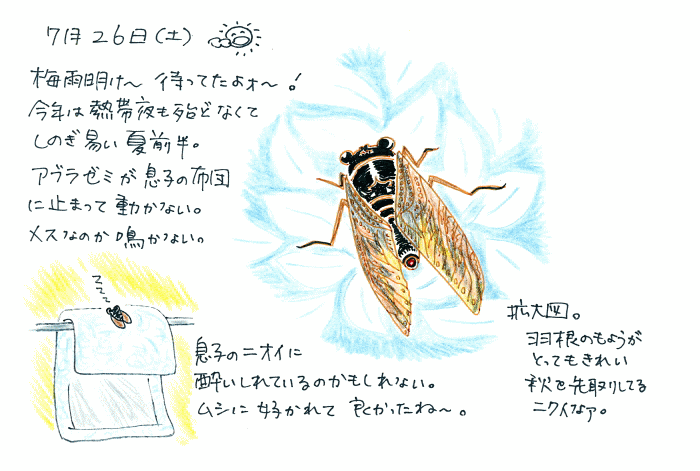 7月26日(土)
梅雨明け〜 待ってたよォ〜!
今年は熱帯夜も殆どなくて
しのぎ易い夏前半。
アブラゼミが息子の布団
に止まって動かない。
メスなのか鳴かない。
zzz
息子のニオイに
酔いしれているのかもしれない。
ムシに好かれて良かったね〜。
拡大図。
羽根のもようが
とってもきれい
秋を先取りしてる
ニクイなァ。